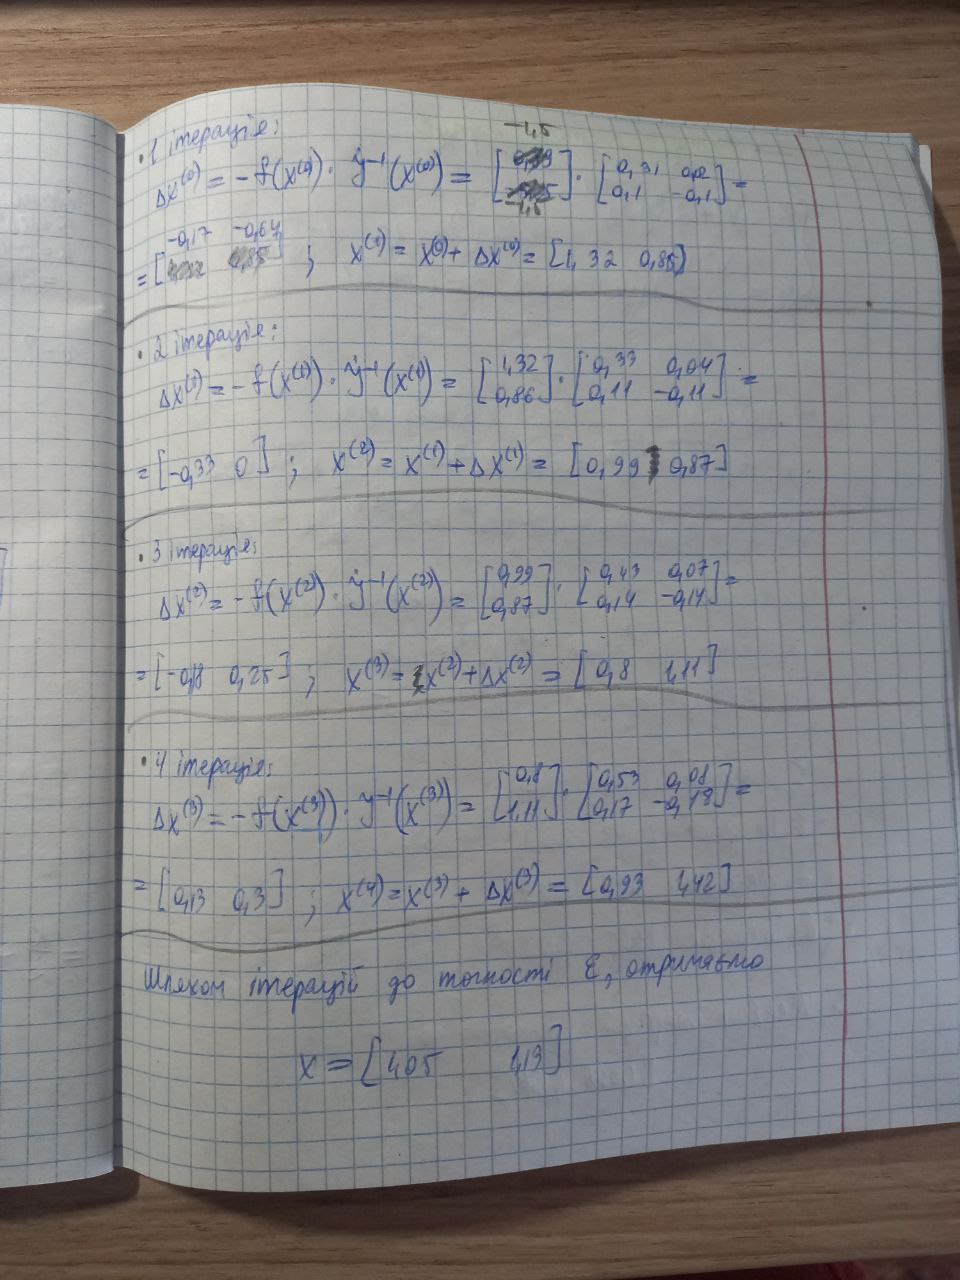 • 1 ітерація:
-1,5
Δx⁽⁰⁾ = - f(x⁽⁰⁾) · y⁻¹(x⁽⁰⁾) = [ ] · [0,31 0,2
0,1 -0,1] =
-1,5
= [-0,17 -0,64] ; x⁽¹⁾ = x⁽⁰⁾ + Δx⁽⁰⁾ = [1,32 0,85]
• 2 ітерація:
Δx⁽¹⁾ = - f(x⁽¹⁾) · y⁻¹(x⁽¹⁾) = [1,32
0,86] · [0,33 0,04
0,11 -0,11] =
= [-0,33 0] ; x⁽²⁾ = x⁽¹⁾ + Δx⁽¹⁾ = [0,99 0,87]
• 3 ітерація:
Δx⁽²⁾ = - f(x⁽²⁾) · y⁻¹(x⁽²⁾) = [0,99
0,87] · [0,43 0,07
0,14 -0,14] =
= [-0,18 0,25] ; x⁽³⁾ = x⁽²⁾ + Δx⁽²⁾ = [0,8 1,11]
• 4 ітерація:
Δx⁽³⁾ = - f(x⁽³⁾) · y⁻¹(x⁽³⁾) = [0,8
1,11] · [0,53 0,08
0,17 -0,18] =
= [0,13 0,3] ; x⁽⁴⁾ = x⁽³⁾ + Δx⁽³⁾ = [0,93 1,42]
Шляхом ітерацій до точності ε, отримаємо
x = [1,05 1,13]